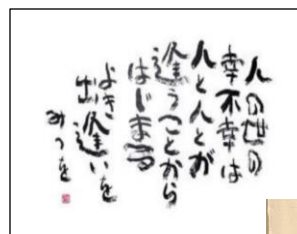 人の世の
幸不幸は
人と人とが
逢うことから
はじまる
よき
出逢いを
みつを